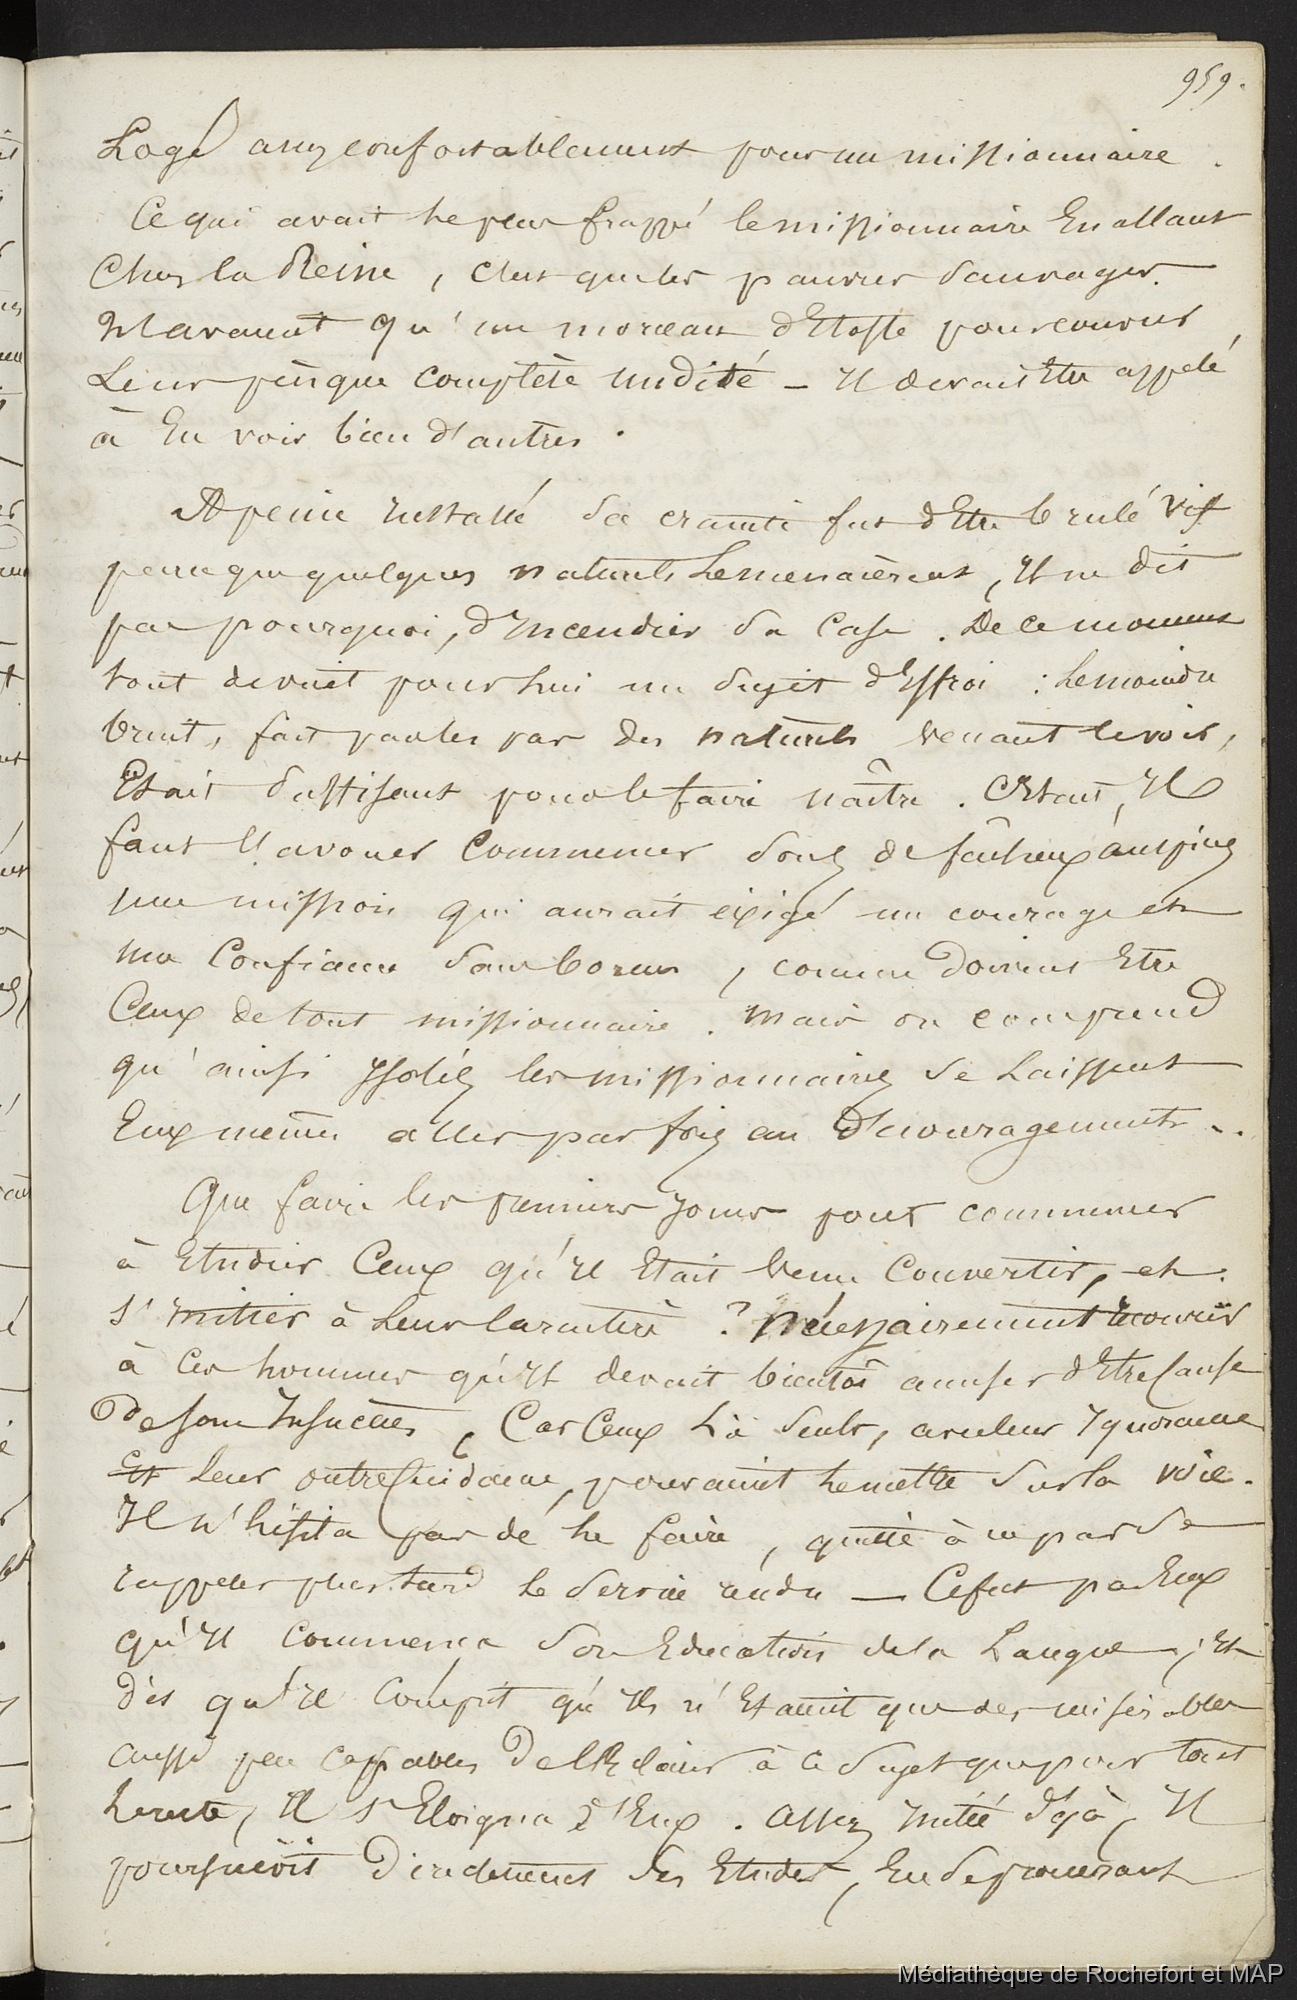 959.
Logé assez confortablement pour un missionnaire.
Ce qui avait le plus frappé le missionnaire En allant
Chez la Reine, c'est que les pauvres Sauvages.
N'avaient qu'un morceau d'Etoffe pour couvrir
Leur presque complète nudité — Il devait Etre appelé
à En voir bien d'autres.
A peine installé Sa crainte fut d'Etre brulé vif
parce que quelques naturels Le menacèrent, Il ne dit
pas pourquoi, d'Incendier Sa Case. De ce moment
tout devint pour Lui un Sujet d'Effroi : Le moindre
bruit, fait par les naturels venant le voir,
Etait Suffisant pour le faire naître. C'Etait, Il
faut l'avouer Commencer Sous de fâcheux auspices
une mission qui aurait éxigé un courage et
une Confiance Sans bornes, comme doivent Etre
Ceux de tout missionnaire. Mais on comprend
qu'ainsi Isolés les missionnaires Se Laissent
Eux memes aller parfois au Découragement..
Que faire les premiers Jours pour commencer
à Etudier Ceux qu'Il Etait Venu Convertir, et
s'initier à Leur Caractère ? Nécessairement recourir
à Ces hommes qu'Il devait bientôt accuser d'Etre Cause
De Son Insuccès, Car Ceux Là Seuls, avec leur Ignorance
Et leur outrecuidance, pouvaient Le mettre Sur la voie.
Il n'hésita pas de Le faire, quitte à ne pas Se
rappeler plus tard Le Service rendu — Ce fut par Eux
qu'Il Commença Son Education de la Langue, Et
dès qu'Il Comprit qu'Ils n'Etaient que des misérables
aussi peu Capables De l'Eclairer à ce Sujet que pour tout
Le reste, Il s'Eloigna d'Eux. Assez Initié déjà, Il
poursuivit Ses Etudes, En Se